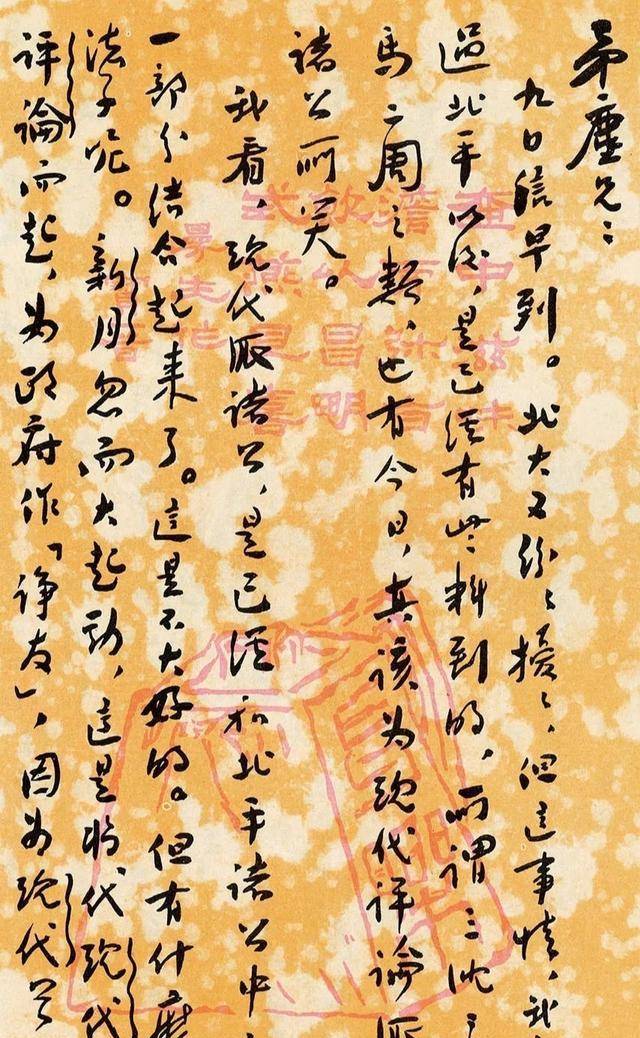 矛塵兄：
九日信早到。北大又紛〻擾〻，但這事情，我
過北平以後，是已經有些料到的，所謂三沈三
馬二周之類，也有今日，真該為現代評論派
諸公所笑。
我看，現代派諸公，是已經和北平諸公中
一部分結合起來了。這是不大好的。但有什麽
法子呢。新月忽而大起勁，這是將代現代
評論而起，為政府作「諍友」，因為現代曾